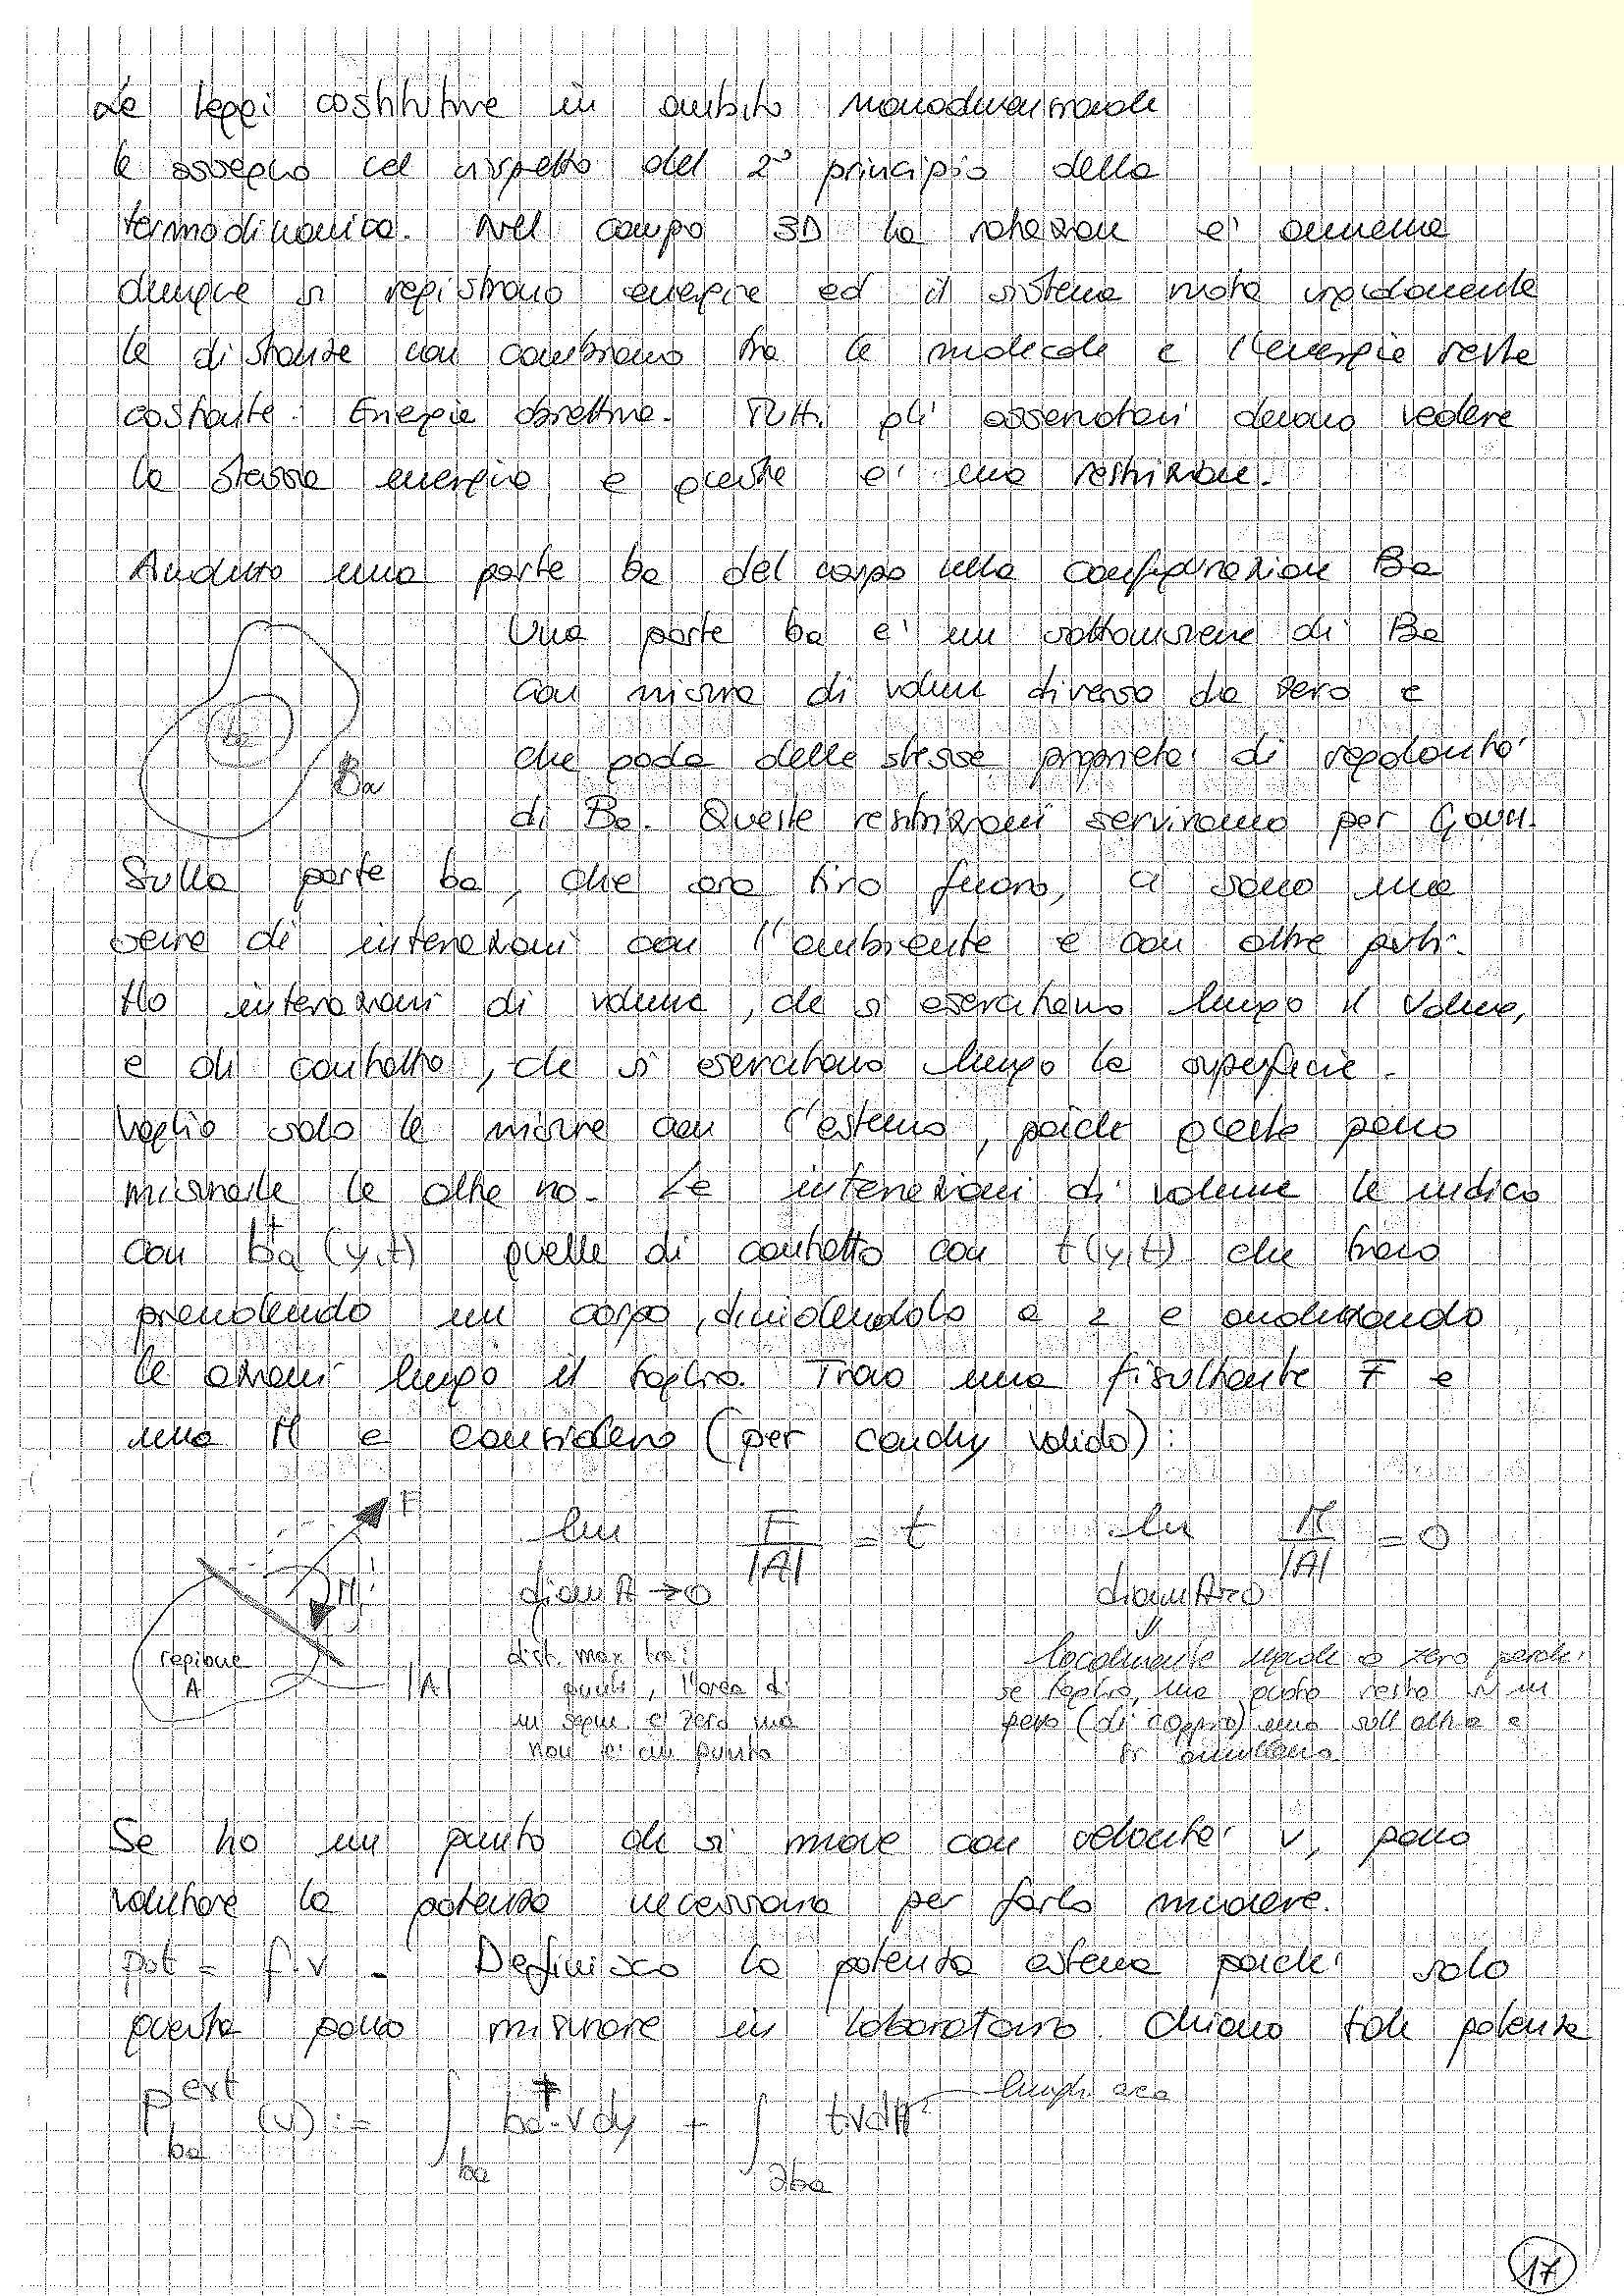 Le leggi costitutive in ambito monodimensionale
le assegno nel rispetto del 2° principio della
termodinamica. Nel campo 3D la rotazione e' ammessa
dunque si registrano energie ed il sistema ruota rigidamente
le distanze non cambiano tra le molecole e l'energia resta
costante. Energia obiettiva. Tutti gli osservatori devono vedere
la stessa energia e questa e' una restrizione.
Analizzo una parte ba del corpo nella configurazione Ba
Una parte ba e' un sottoinsieme di Ba
con misura di volume diverso da zero e
che goda delle stesse proprieta' di regolarita'
di Ba. Queste restrizioni serviranno per Gauss.
ba
Ba
Sulla parte ba, che ora tiro fuori, ci sono una
serie di interazioni con l'ambiente e con altre parti.
Ho interazioni di volume, che si esercitano lungo il volume,
e di contatto, che si esercitano lungo la superficie.
Voglio solo le misure con l'esterno, poiche queste posso
misurarle le altre no. Le interazioni di volume le indico
con b‡a (y,t) quelle di contatto con t(y,t) che trovo
prendendo un corpo, dividendolo a 2 e analizzando
le azioni lungo il taglio. Trovo una risultante F e
una M e considero (per cauchy valido):
F
M
regione
A
|A|
lim F/|A| = t lim M/|A| = 0
diamA→0 diamA→0
dist. max tra i
punti, l'area di
un segm. e' zero ma
non e' un punto
localmente uguale a zero perche'
se taglio, una parte resta in
peso (di coppia) una sull'altra e
si annullano
Se ho un punto che si muove con velocita' v, posso
valutare la potenza necessaria per farlo muovere.
pot = f·v. Definisco la potenza esterna poiche' solo
questa posso misurare in laboratorio. Chiamo tale potenza
P^ext_ba (v) := ∫_ba b‡a·v dy + ∫_∂ba t·v dA lungh. area
17